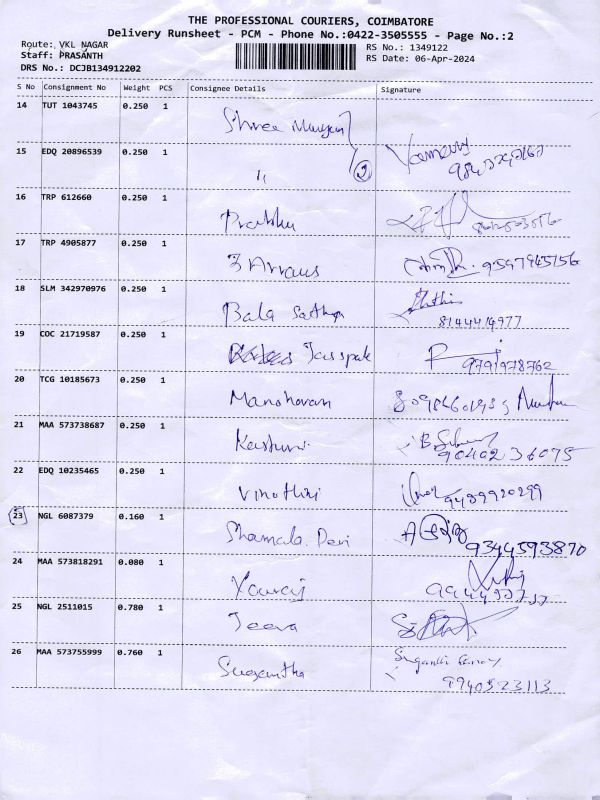 THE PROFESSIONAL COURIERS, COIMBATORE
Delivery Runsheet - PCM - Phone No.:0422-3505555 - Page No.:2
Route: VKL NAGAR
Staff: PRASANTH
DRS No.: DCJB134912202
RS No.: 1349122
RS Date: 06-Apr-2024
S No Consignment No Weight PCS Consignee Details Signature
14 TUT 1043745 0.250 1 Shree
15 EDQ 20896539 0.250 1 " 2
16 TRP 612660 0.250 1 Prabhu
17 TRP 4905877 0.250 1 3 9597945156
18 SLM 342970976 0.250 1 Bala 8144414977
19 COC 21719587 0.250 1 9791978762
20 TCG 10185673 0.250 1 Manoharan
21 MAA 573738687 0.250 1 9040236075
22 EDQ 10235465 0.250 1 Vinothini
23 NGL 6087379 0.160 1 Shamala Devi 9344593870
24 MAA 573818291 0.080 1
25 NGL 2511015 0.780 1 Jeeva
26 MAA 573755999 0.760 1 Sugantha
9940523113